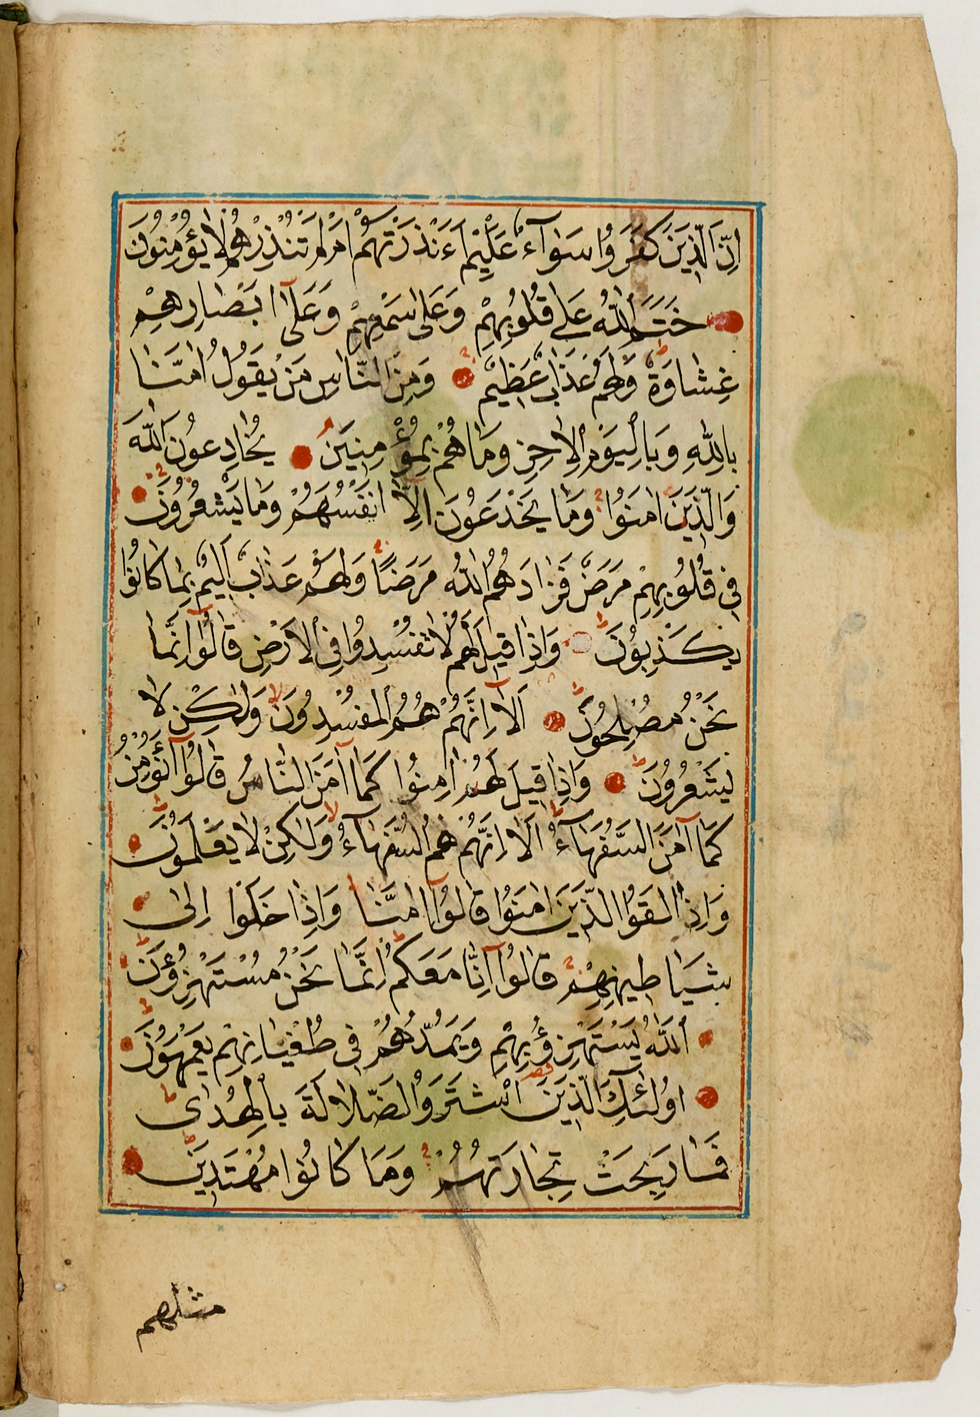 اِنَّ الَّذِيْنَ كَفَرُوْا سَوَآءٌ عَلَيْهِمْ ءَاَنْذَرْتَهُمْ اَمْ لَمْ تُنْذِرْهُمْ لَا يُؤْمِنُوْنَ
خَتَمَ اللّٰهُ عَلٰى قُلُوْبِهِمْ وَعَلٰى سَمْعِهِمْ وَعَلٰٓى اَبْصَارِهِمْ
غِشَاوَةٌ وَلَهُمْ عَذَابٌ عَظِيْمٌ وَمِنَ النَّاسِ مَنْ يَقُوْلُ اٰمَنَّا
بِاللّٰهِ وَبِالْيَوْمِ الْاٰخِرِ وَمَا هُمْ بِمُؤْمِنِيْنَ يُخَادِعُوْنَ اللّٰهَ
وَالَّذِيْنَ اٰمَنُوْا وَمَا يَخْدَعُوْنَ اِلَّآ اَنْفُسَهُمْ وَمَا يَشْعُرُوْنَ
فِىْ قُلُوْبِهِمْ مَرَضٌ فَزَادَهُمُ اللّٰهُ مَرَضًا وَلَهُمْ عَذَابٌ اَلِيْمٌ بِمَا كَانُوْا
يَكْذِبُوْنَ وَاِذَا قِيْلَ لَهُمْ لَا تُفْسِدُوْا فِى الْاَرْضِ قَالُوْٓا اِنَّمَا
نَحْنُ مُصْلِحُوْنَ اَلَآ اِنَّهُمْ هُمُ الْمُفْسِدُوْنَ وَلٰكِنْ لَا
يَشْعُرُوْنَ وَاِذَا قِيْلَ لَهُمْ اٰمِنُوْا كَمَآ اٰمَنَ النَّاسُ قَالُوْٓا اَنُؤْمِنُ
كَمَآ اٰمَنَ السُّفَهَآءُ اَلَآ اِنَّهُمْ هُمُ السُّفَهَآءُ وَلٰكِنْ لَا يَعْلَمُوْنَ
وَاِذَا لَقُوا الَّذِيْنَ اٰمَنُوْا قَالُوْٓا اٰمَنَّا وَاِذَا خَلَوْا اِلٰى
شَيَاطِيْنِهِمْ قَالُوْٓا اِنَّا مَعَكُمْ اِنَّمَا نَحْنُ مُسْتَهْزِؤُنَ
اَللّٰهُ يَسْتَهْزِؤُ بِهِمْ وَيَمُدُّهُمْ فِىْ طُغْيَانِهِمْ يَعْمَهُوْنَ
اُولٰٓئِكَ الَّذِيْنَ اشْتَرَوُا الضَّلَالَةَ بِالْهُدٰى
فَمَا رَبِحَتْ تِجَارَتُهُمْ وَمَا كَانُوْا مُهْتَدِيْنَ
مثلهم